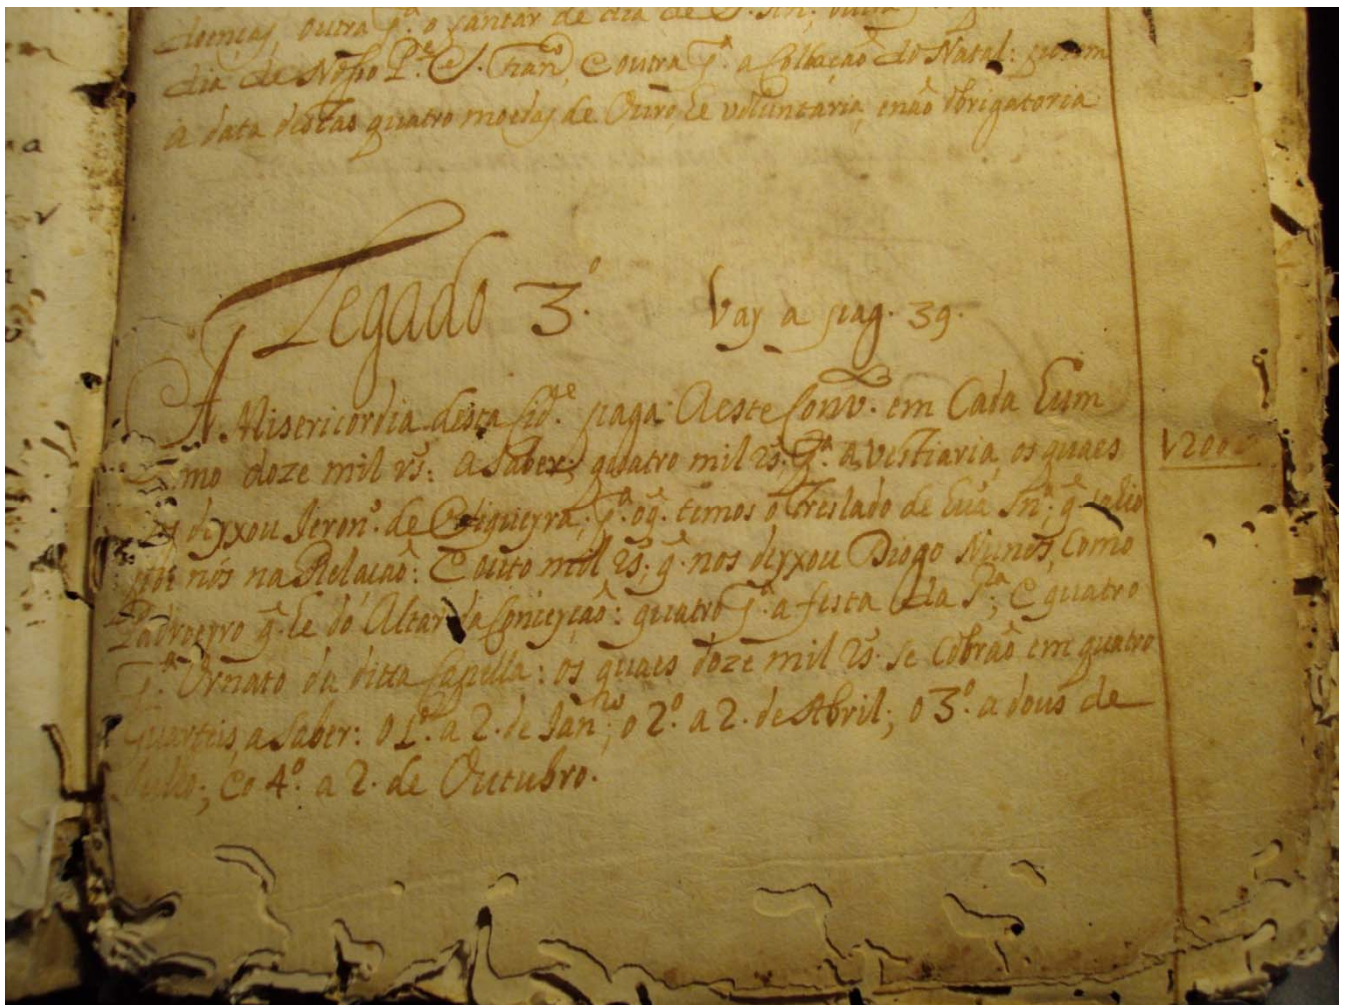 doenças, outra p.ª o jantar de dia de S.
dia de Nosso P.e S. Fran.co, e outra p.ª a Collaçaõ do Natal: porem
a data destas quatro moedas de Ouro, he voluntaria, enaõ obrigatoria
Legado 3.º Vay a pag. 39.
A Misericordia desta Cid.e paga aeste Conv.to em Cada hum
mo doze mil rs: a saber, quatro mil rs. p.ª a vestiaria, os quaes
deyxou Jeron.º de; p.ª oq. temos o treslado de huã Sn.ª, q. sahio
por nós na Relacaõ: e outo mil rs. q. nos deyxou Diogo Nunes, Como
Padroeyro q. he do Altar da Conceyçaõ: quatro p.ª a festa da, e quatro
p.ª Ornato da ditta Capella: os quaes doze mil rs. se Cobraõ em quatro
quarteis, a saber: o 1.º a 2. de Jan.ro; o 2.º a 2. de Abril; o 3.º a dous de
Julho; e o 4.º a 2. de Outubro.